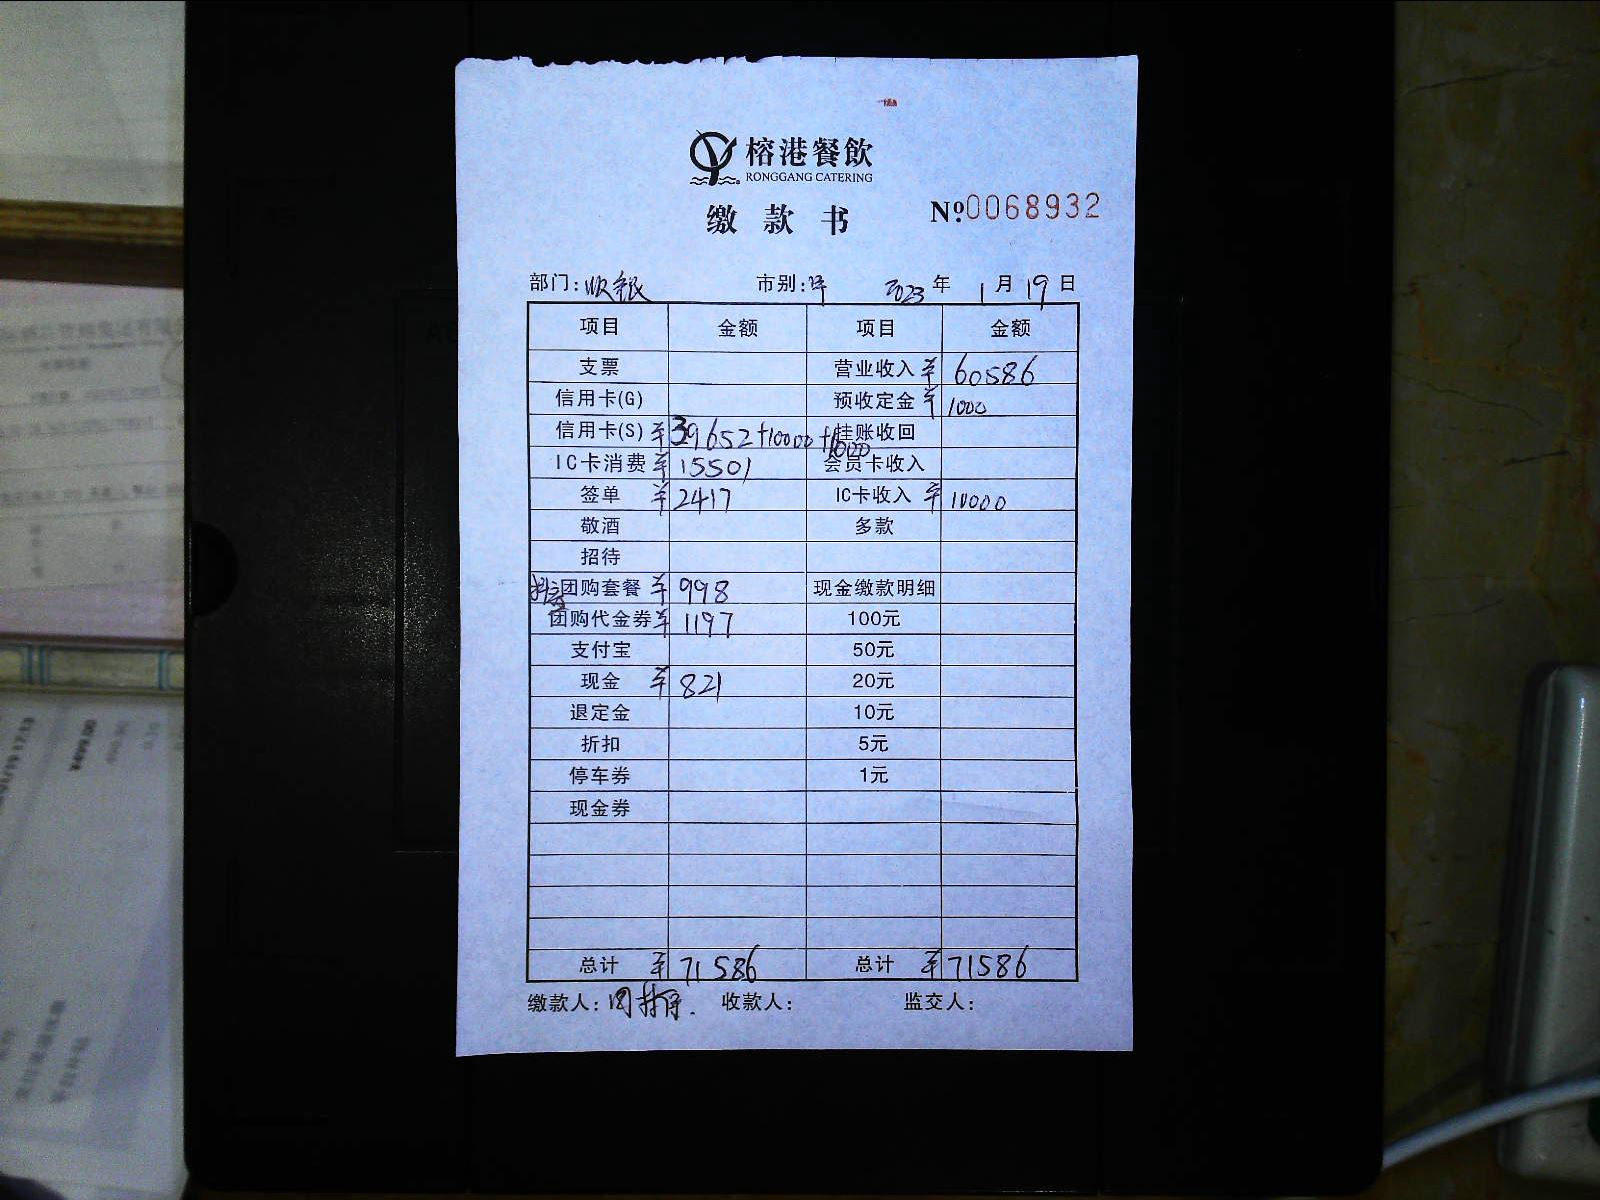 榕港餐飲
RONGGANG CATERING
缴款书 №0068932
部门:收银 市别: 2023年1月19日
项目 金额 项目 金额
支票 营业收入 ¥60586
信用卡(G) 预收定金 ¥1000
信用卡(S) ¥39652+10000+1000 挂账收回
IC卡消费 ¥15501 会员卡收入
签单 ¥2417 IC卡收入 ¥10000
敬酒 多款
招待
抖音团购套餐 ¥998 现金缴款明细
团购代金券 ¥1197 100元
支付宝 50元
现金 ¥821 20元
退定金 10元
折扣 5元
停车券 1元
现金券
总计 ¥71586 总计 ¥71586
缴款人: 收款人: 监交人: